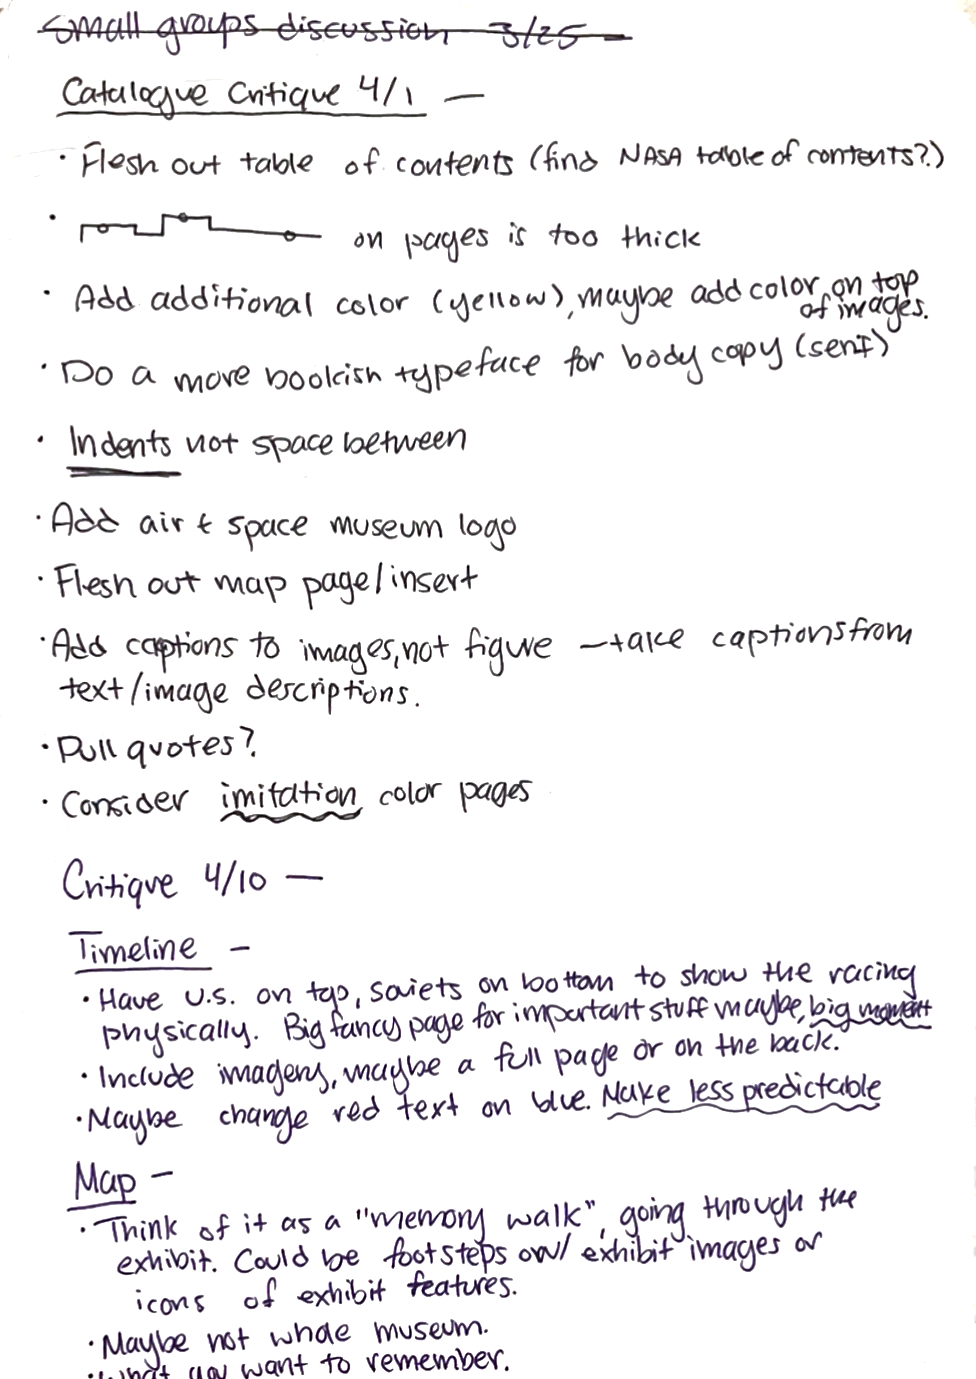 Small groups discussion 3/25
Catalogue Critique 4/1 —
· Flesh out table of contents (find NASA table of contents?)
· on pages is too thick
· Add additional color (yellow), maybe add color on top
of images.
· Do a more bookish typeface for body copy (serif)
· Indents not space between
· Add air & space museum logo
· Flesh out map page/insert
· Add captions to images, not figure — take captions from
text/image descriptions.
· Pull quotes?
· Consider imitation color pages
Critique 4/10 —
Timeline —
· Have U.S. on top, Soviets on bottom to show the racing
physically. Big fancy page for important stuff maybe, big moment
· Include imagery, maybe a full page or on the back.
· Maybe change red text on blue. Make less predictable
Map —
· Think of it as a "memory walk", going through the
exhibit. Could be footsteps w/ exhibit images or
icons of exhibit features.
· Maybe not whole museum.
· What you want to remember.